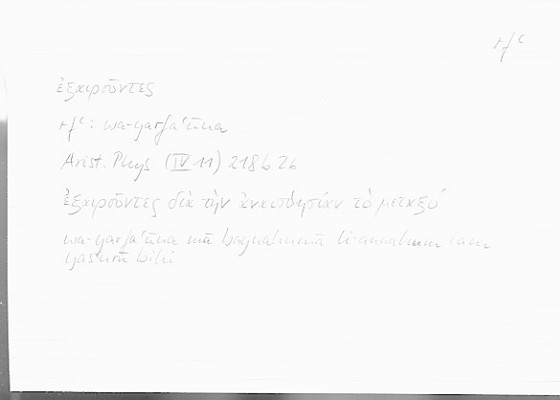 rfʿ
ἐξαιροῦντες
rfʿ: wa-yarfaʿūna
Arist. Phys. (IV 11) 218b 26
ἐξαιροῦντες διὰ τὴν ἀναισθησίαν τὸ μεταξύ
wa-yarfaʿūna mā baynahumā li-annahum lam
yašʿurū bihi